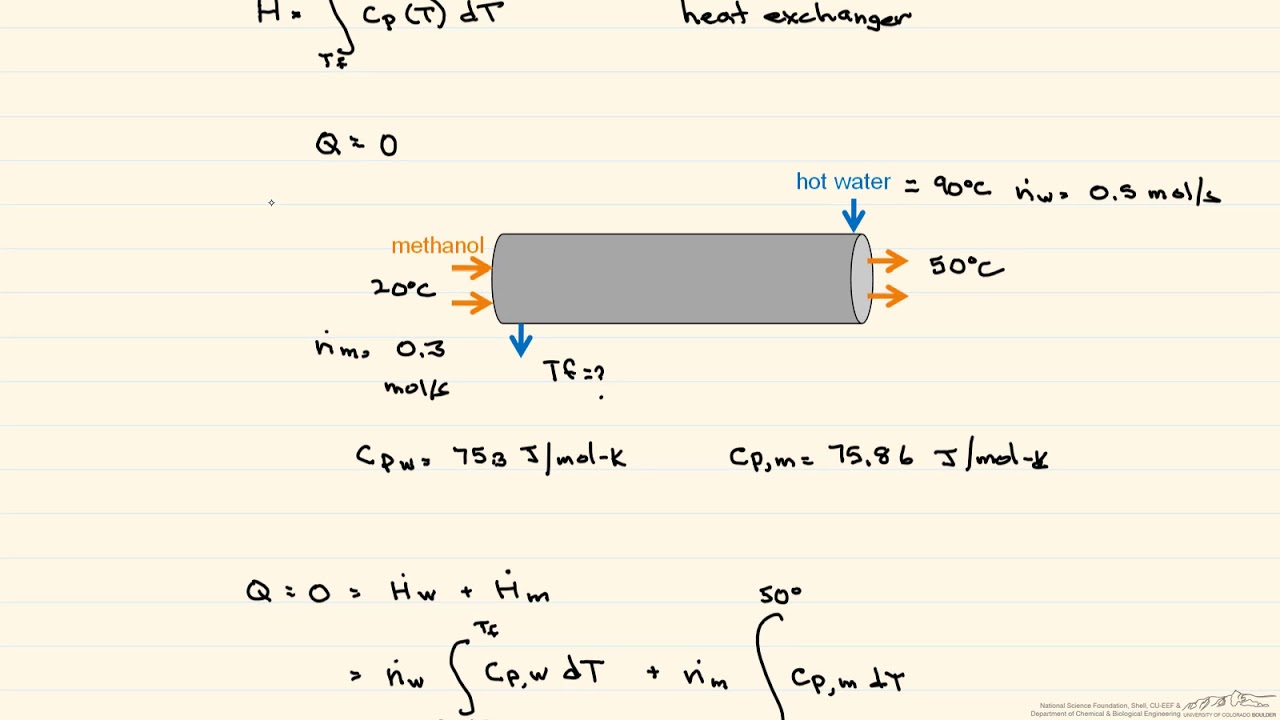 H = ∫ Cp (T) dT heat exchanger
Tf
Q = 0
hot water = 90°C ṅw = 0.5 mol/s
methanol
50°C
20°C
ṅm = 0.3
mol/s
Tf = ?
Cpw = 753 J/mol-K Cp,m = 75.86 J/mol-K
Q = 0 = Ḣw + Ḣm
50°
Tf
= ṅw ∫ Cp,w dT + ṅm ∫ Cp,m dT
National Science Foundation, Shell, CU-EEF &
Department of Chemical & Biological Engineering UNIVERSITY OF COLORADO BOULDER